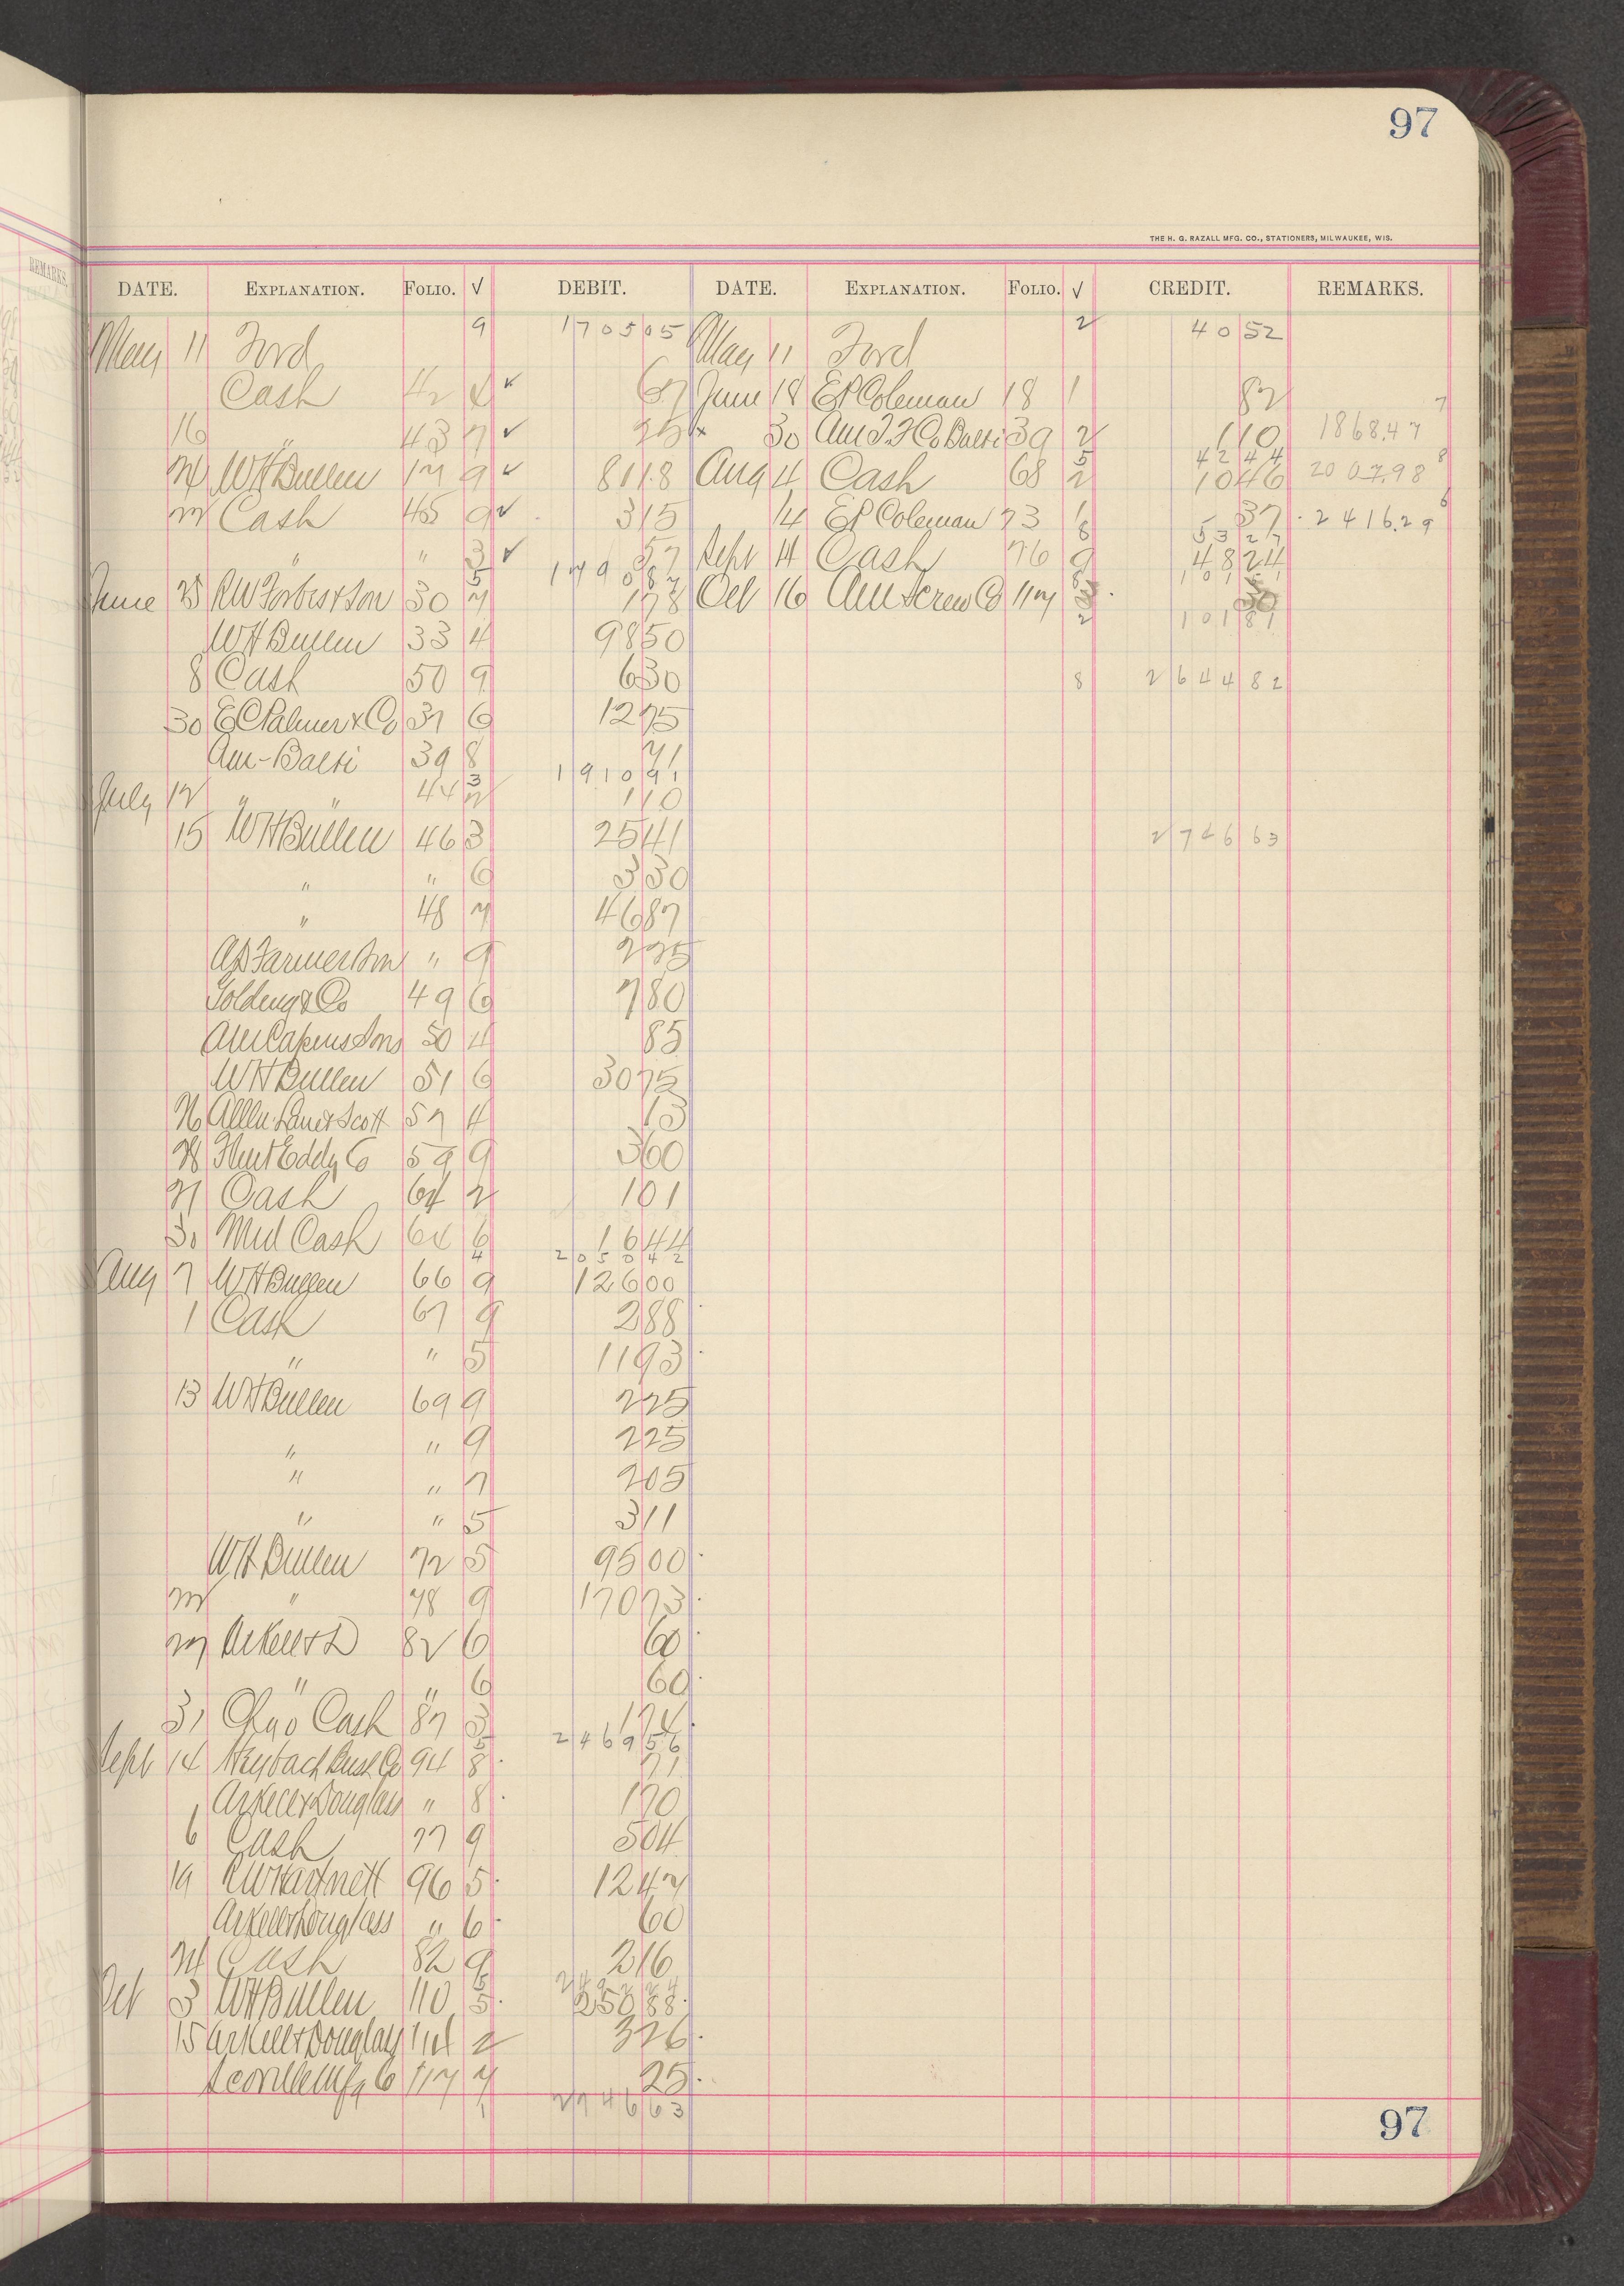 97
THE H. G. RAZALL MFG. CO., STATIONERS, MILWAUKEE, WIS.
DATE. EXPLANATION. FOLIO. √ DEBIT. DATE. EXPLANATION. FOLIO. √ CREDIT. REMARKS.
May 11 Ford 9 1705 05 May 11 Ford 2 40 52
Cash 42 4 ✓ 67 June 18 EP Coleman 18 1 82
16 " 43 7 ✓ 25 30 Am I F Co Balti 39 2 1 10 1868.47 7
42 44
24 WH Bullen 17 9 ✓ 81 18 Aug 4 Cash 68 2 10 46 2007.98 8
22 Cash 45 9 ✓ 3 15 14 EP Coleman 73 1 37 2416.29 6
8 53 27
" " 3 ✓ 57 Sept 14 Cash 76 9 48 24
5 1790 87 101 51
June 25 RW Forbes & Son 30 7 1 78 Oct 16 Am Screw Co 117 3 30
2 101 81
WH Bullen 33 4 98 50
8 Cash 50 9 6 30 8 2644 82
30 EC Palmer & Co 37 6 12 75
Am-Balti 39 8 71
3 1910 91
July 12 " " 44 2 1 10
15 WH Bullen 46 3 25 41 2746 63
" " 6 3 30
" 48 7 46 87
AD Farmer & Son " 9 2 25
Golding & Co 49 6 7 80
AM Capens Sons 50 4 85
WH Bullen 51 6 30 75
26 Allen Lane & Scott 57 4 13
28 Hunt Eddy Co 59 9 3 60
27 Cash 64 2 1 01
30 Mil Cash 64 6 16 44
4 2050 42
Aug 7 WH Bullen 66 9 126 00
1 Cash 67 9 2 88
" " 5 11 93
13 WH Bullen 69 9 2 25
" " 9 2 25
" " 7 2 05
" " 5 3 11
WH Bullen 72 5 95 00
22 " 78 9 170 73
27 Arkell & D 82 6 60
" " 6 60
31 Chgo Cash 87 3 1 74
5 2469 56
Sept 14 94 8 71
Arkell & Douglass " 8 1 70
6 Cash 77 9 5 04
19 RW Hartnett 96 5 12 47
Arkell & Douglass " 6 60
24 Cash 82 9 2 16
5
Oct 3 WH Bullen 110 5 250 88
15 Arkell & Douglass 114 2 3 26
Scoville Mfg Co 117 7 25
1 2746 63
97